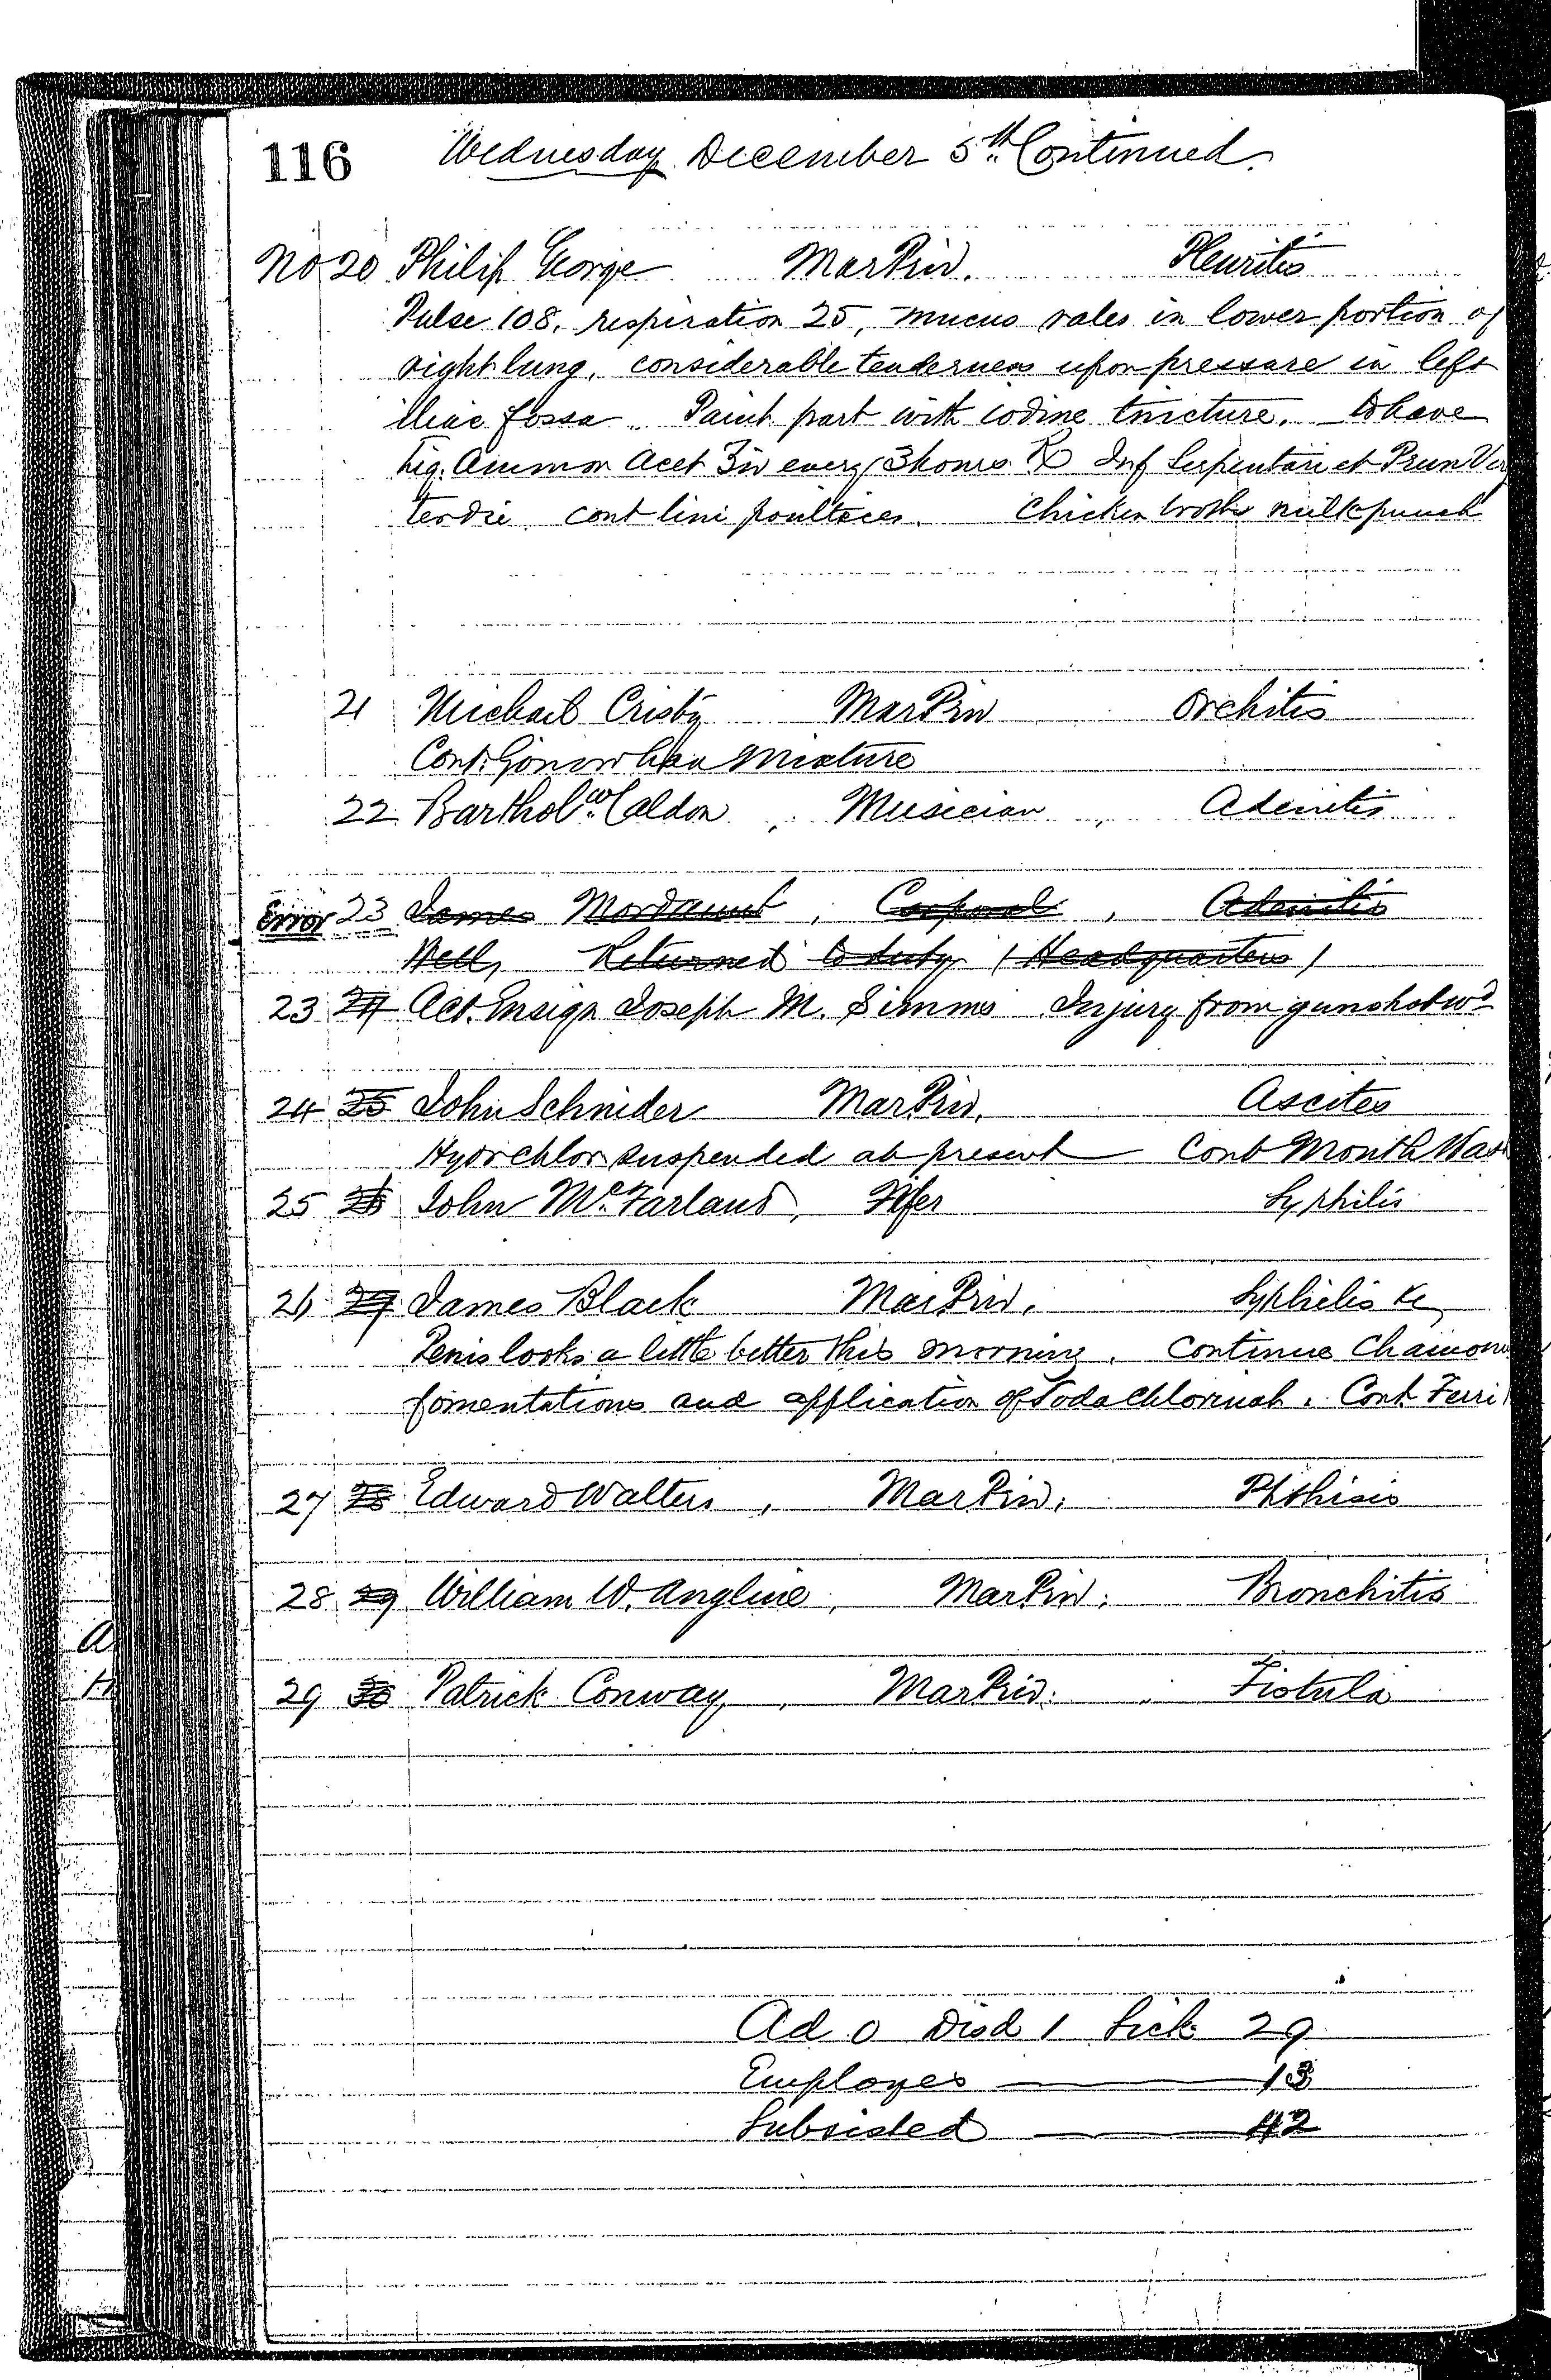 116 Wednesday December 5th Continued.
No 20 Philip George Mar Priv. Pleuritis
Pulse 108, respiration 25, mucus rales in lower portion of
right lung, considerable tenderness upon pressure in left
iliac fossa. Paint part with iodine tincture. to have
Liq. Ammon Acet ʒiv every 3 hours ℞ Inf Serpentari et Prun Vir
ter die cont lini poultices. Chicken broth milk punch
21 Michael Crisby Mar Priv Orchitis
Cont. Gonorrhea Mixture
22 Barthol.w Caldon, Musician, Adenitis
Error 23 James Mordaunt, Corporal, Adenitis
Well, Returned to duty (Headquarters)
23 24 Act. Ensign Joseph M. Simms Injury from gunshot wd
24 25 John Schnider Mar Priv. Ascites
Hydr chlor suspended at present Cont Mouth Wash
25 26 John McFarland, Fifer Syphilis
26 27 James Black Mar Priv. Syphilis &c
Penis looks a little better this morning. Continue Chamom
fomentations and application of Soda Chlorinat. Cont Ferri
27 28 Edward Walters, Mar Priv. Phthisis
28 29 William W. Angline, Mar Priv. Bronchitis
29 30 Patrick Conway, Mar Priv. Fistula
Ad 0 Disd 1 Sick 29
Employes 13
Subsisted 42